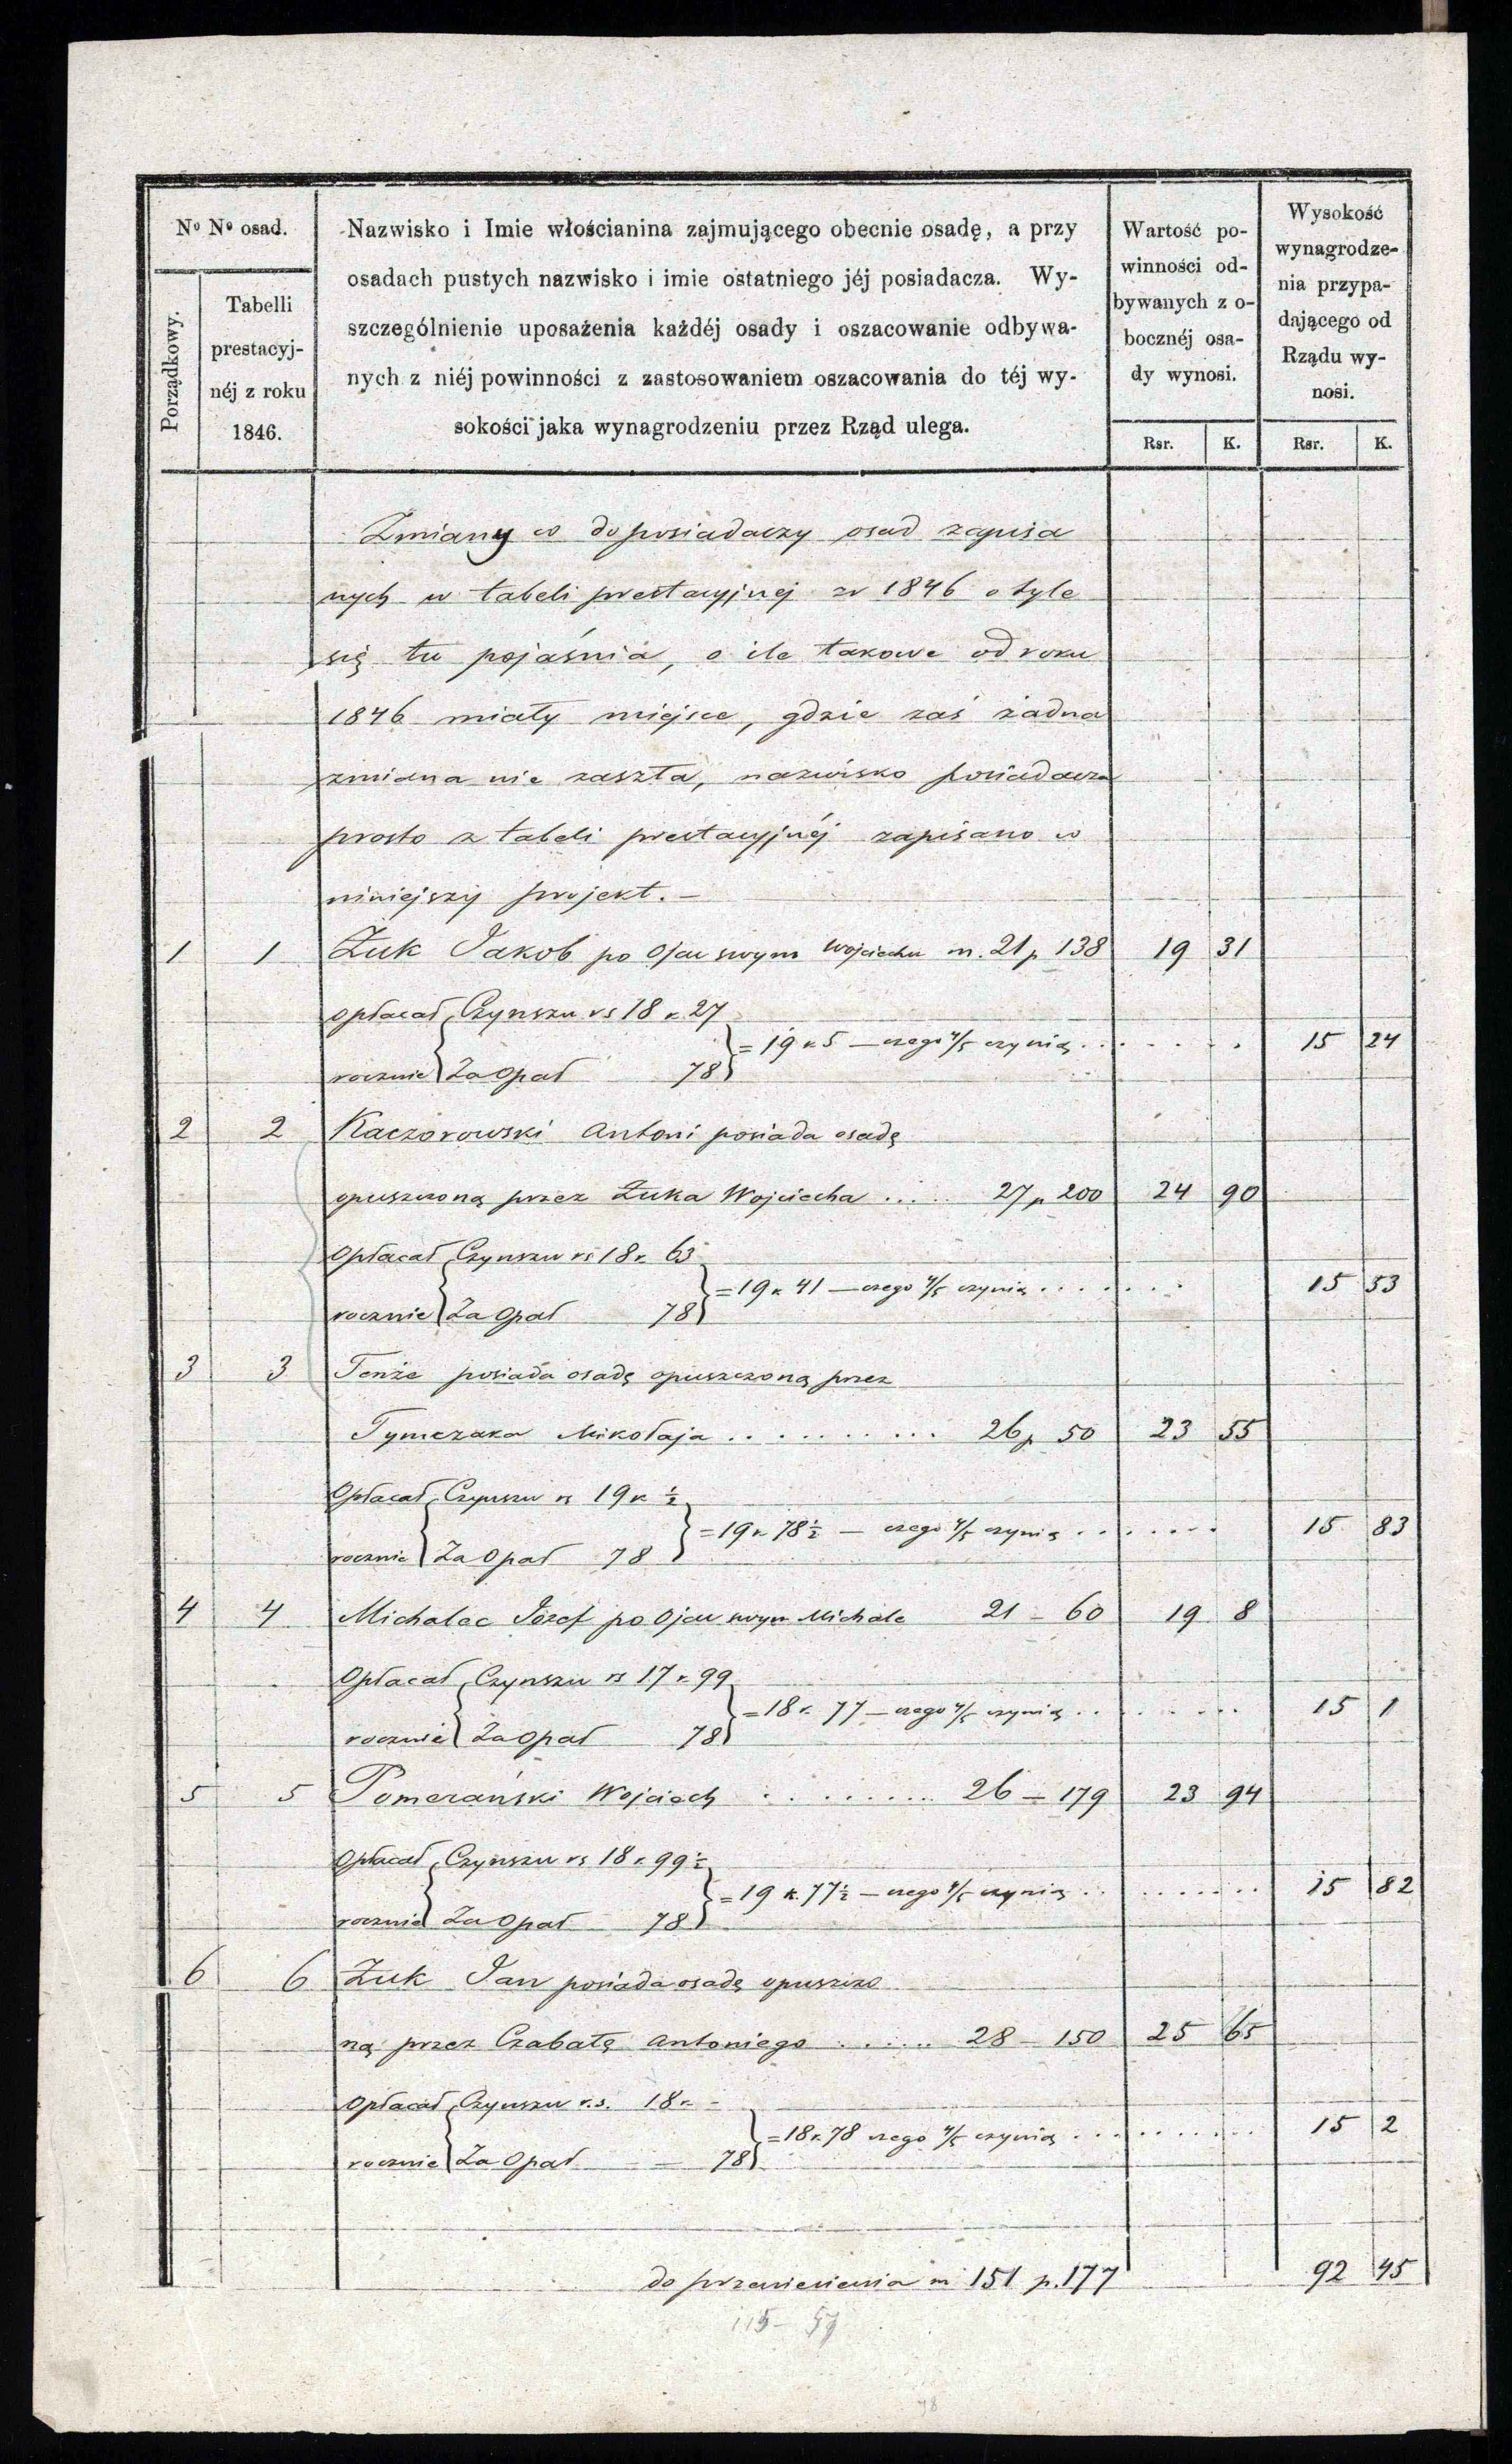 No No osad.
Porządkowy.
Tabelli
prestacyj-
néj z roku
1846.
Nazwisko i Imie włościanina zajmującego obecnie osadę, a przy
osadach pustych nazwisko i imie ostatniego jéj posiadacza. Wy-
szczególnienie uposażenia każdéj osady i oszacowanie odbywa-
nych z niéj powinności z zastosowaniem oszacowania do téj wy-
sokości jaka wynagrodzeniu przez Rząd ulega.
Wartość po-
winności od-
bywanych z o-
bocznéj osa-
dy wynosi.
Rsr. K.
Wysokość
wynagrodze-
nia przypa-
dającego od
Rządu wy-
nosi.
Rsr. K.
Zmiany co do posiadaczy osad zapisa
nych w tabeli prestacyjnej z r 1846 o tyle
się tu pojaśnia, o ile takowe od roku
1846 miały miejsce, gdzie zaś żadna
zmiana nie zaszła, nazwisko posiadacza
prosto z tabeli prestacyjnéj zapisano w
niniejszy projekt. —
1 1 Żuk Jakob po Ojcu swym Wojciechu m. 21 p 138 19 31
opłacał Czynszu rs 18 k 27
= 19 k 5 — czego 4/5 czynią . . . . . . . 15 24
rocznie Za Opał 78
2 2 Kaczorowski Antoni posiada osadę
opuszczoną przez Żuka Wojciecha ..... 27 p 200 24 90
Opłacał Czynszu rs 18 k 63
= 19 k 41 — czego 4/5 czynią . . . . . . . 15 53
rocznie Za Opał 78
3 3 Tenże posiada osadę opuszczoną przez
Tymczaka Mikołaja . . . . . . . . . . 26 p 50 23 55
Opłacał Czynszu rs 19 k ½
= 19 k 78½ — czego 4/5 czynią . . . . . . . 15 83
rocznie Za Opał 78
4 4 Michalec Józef po Ojcu swym Michale 21 – 60 19 8
Opłacał Czynszu rs 17 k 99
= 18 k 77 — czego 4/5 czynią . . . . . . . 15 1
rocznie Za Opał 78
5 5 Pomerański Wojciech . . . . . . . . . 26 — 179 23 94
Opłacał Czynszu rs 18 k 99½
= 19 k. 77½ — czego 4/5 czynią . . . . . . . . . 15 82
rocznie Za Opał 78
6 6 Żuk Jan posiada osadę opuszczo
ną przez Czabatę Antoniego ...... 28 – 150 25 65
Opłacał Czynszu r.s. 18 k –
= 18 k 78 czego 4/5 czynią . . . . . . . . . . 15 2
rocznie Za Opał — 78
do przeniesienia m 151 p. 177 92 45
115 – 57
78